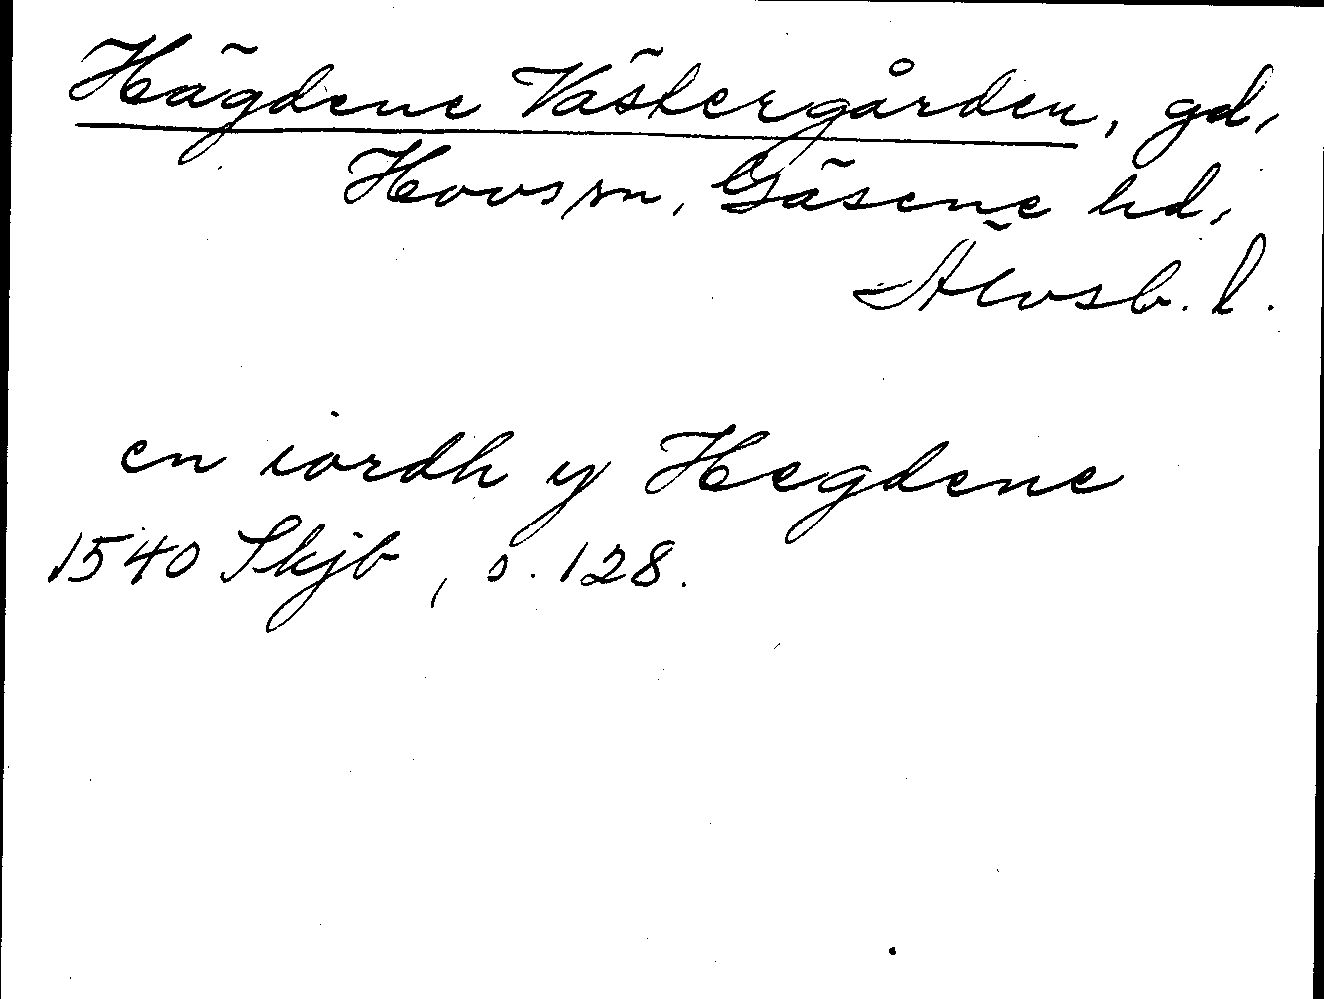 Hägdene Västergården, gd,
Hovs sn, Gäsene hd,
Älvsb. l.
en iordh y Hegdene
1540 Skjb, s. 128.